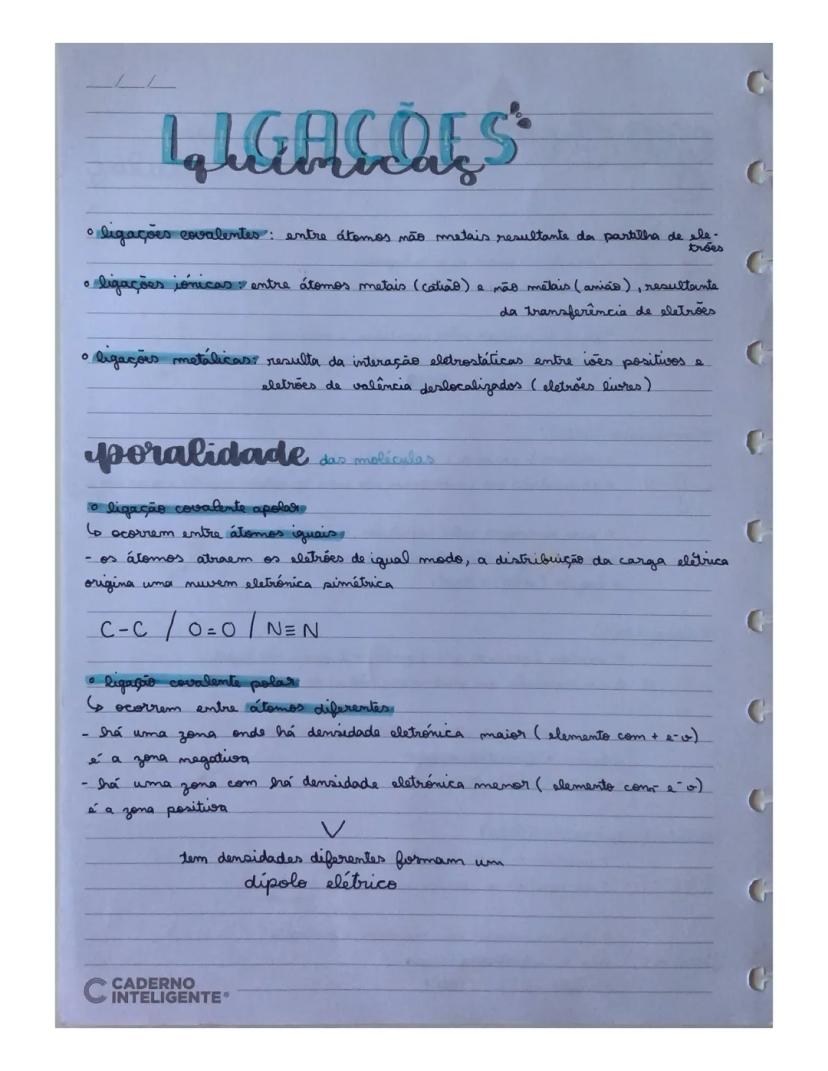 __/__/__
LIGAÇÕES
químicas
ligações covalentes: entre átomos não metais resultante da partilha de ele-
trões
ligações iónicas: entre átomos metais (catião) e não metais (anião), resultante
da transferência de eletrões
ligações metálicas: resulta da interação eletrostáticas entre iões positivos e
eletrões de valência deslocalizados (eletrões livres)
poralidade das moléculas
ligação covalente apolar
↳ ocorrem entre átomos iguais
- os átomos atraem os eletrões de igual modo, a distribuição da carga elétrica
origina uma nuvem eletrónica simétrica
C-C / O=O / N≡N
ligação covalente polar
↳ ocorrem entre átomos diferentes
- há uma zona onde há densidade eletrónica maior (elemento com + e-v)
é a zona negativa
- há uma zona com há densidade eletrónica menor (elemento com - e-v)
é a zona positiva
tem densidades diferentes formam um
dipolo elétrico
CADERNO
INTELIGENTE®